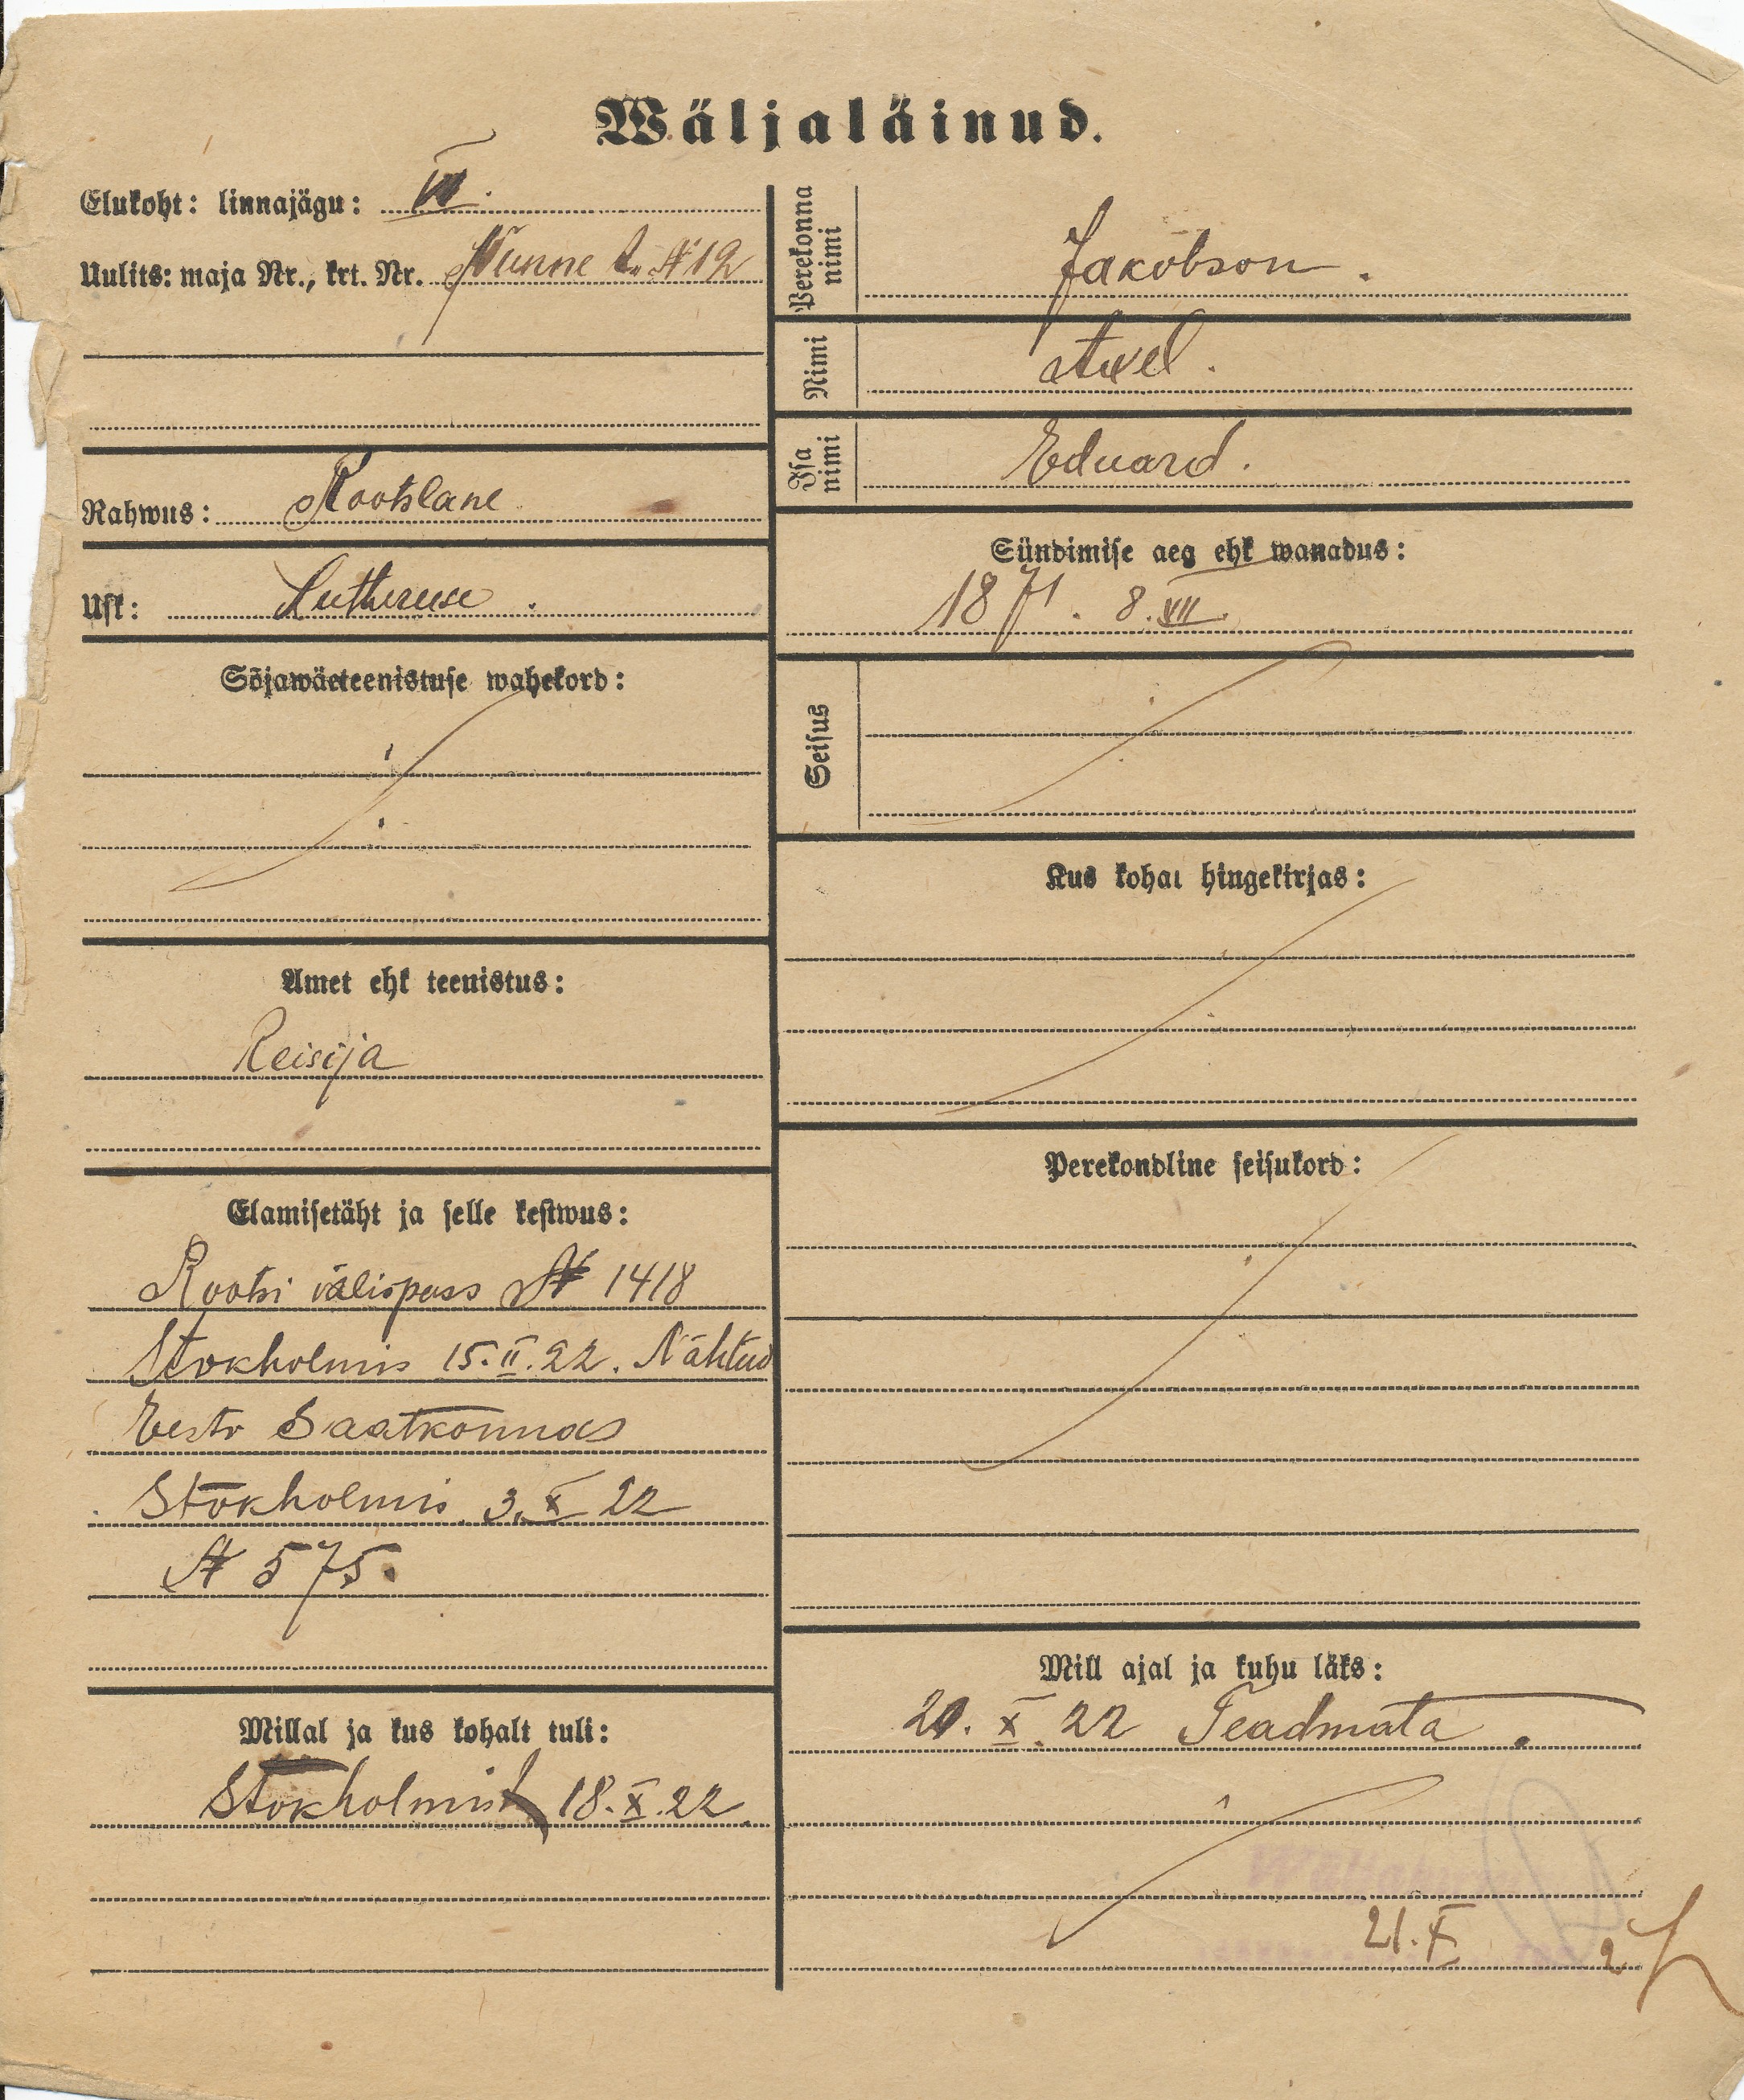 Wäljaläinud.
Elukoht: linnajägu: VI.
Uulits: maja Nr., krt. Nr. Nunne t. № 12
Rahwus: Rootslane
Usk: Lutheruse.
Sõjawäeteenistuse wahekord:
Amet ehk teenistus:
Reisija
Elamisetäht ja selle kestwus:
Rootsi välispass № 1418
Stokholmis 15.II.22. Nähtud
Eesti Saatkonnas
Stokholmis 3.X 22
№ 575.
Millal ja kus kohalt tuli:
Stokholmist 18.X.22
Perekonna nimi
Jakobson.
Nimi
Axel.
Isa nimi
Eduard.
Sündimise aeg ehk wanadus:
1871. 8.VII.
Seisus
Kus kohal hingekirjas:
Perekondline seisukord:
Mill ajal ja kuhu läks:
20. X. 22 Teadmata.
21. X 2